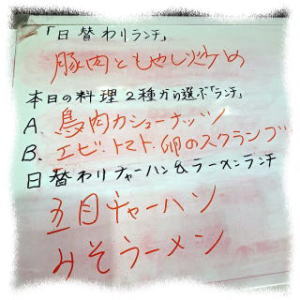 「日替わりランチ」
豚肉ともやし炒め
本日の料理2種から選ぶ「ランチ」
A. 鳥肉カシューナッツ
B. エビ、トマト、卵のスクランブ
日替わりチャーハン&ラーメンランチ
五目チャーハン
みそラーメン